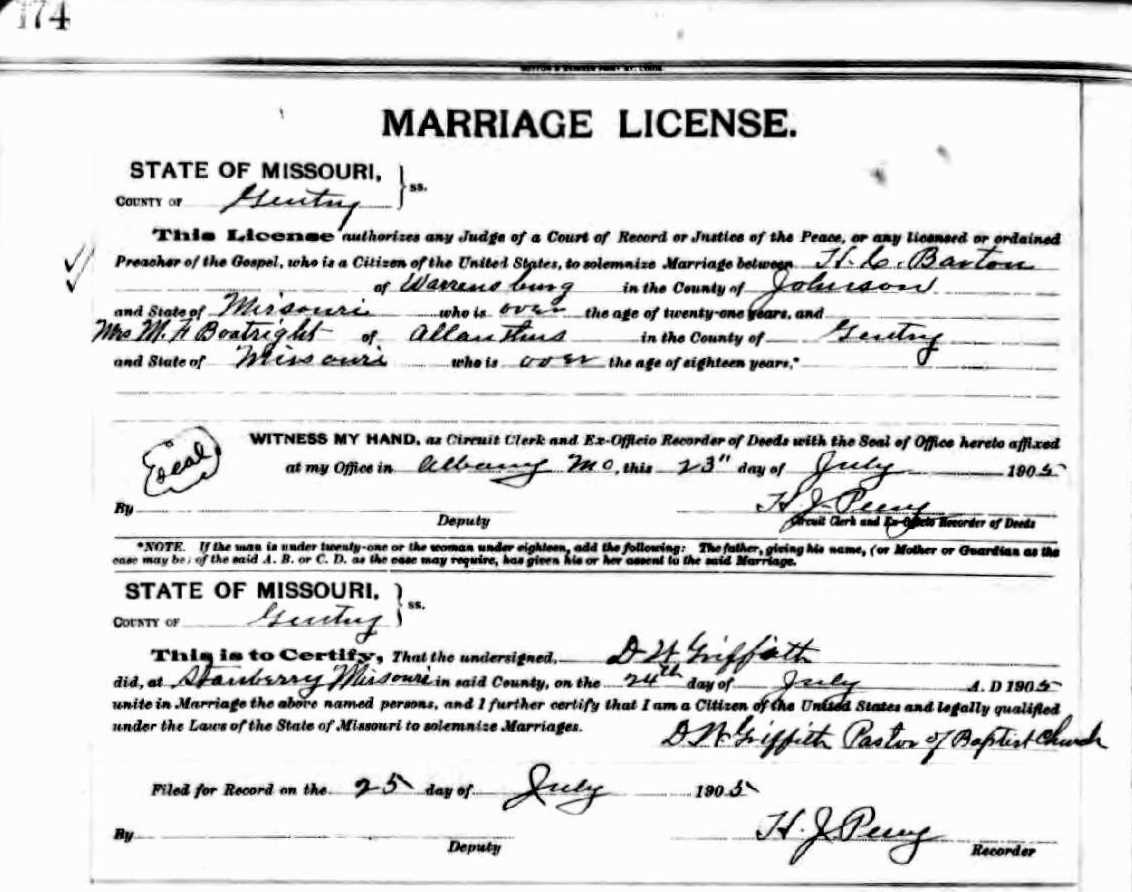 174
MARRIAGE LICENSE.
STATE OF MISSOURI, } ss.
COUNTY OF Gentry
This License authorizes any Judge of a Court of Record or Justice of the Peace, or any licensed or ordained
Preacher of the Gospel, who is a Citizen of the United States, to solemnize Marriage between H. C. Barton
of Warrensburg in the County of Johnson
and State of Missouri who is over the age of twenty-one years, and
Mrs M. A Boatright of Allanthus in the County of Gentry
and State of Missouri who is over the age of eighteen years,*
WITNESS MY HAND, as Circuit Clerk and Ex-Officio Recorder of Deeds with the Seal of Office hereto affixed
Seal
at my Office in Albany Mo, this 23" day of July 1905
By H. J. Peery
Deputy Circuit Clerk and Ex-Officio Recorder of Deeds
*NOTE. If the man is under twenty-one or the woman under eighteen, add the following: The father, giving his name, (or Mother or Guardian as the
case may be) of the said A. B. or C. D. as the case may require, has given his or her assent to the said Marriage.
STATE OF MISSOURI, } ss.
COUNTY OF Gentry
This is to Certify, That the undersigned, D W Griffith
did, at Stanberry Missouri in said County, on the 24th day of July A. D 1905
unite in Marriage the above named persons, and I further certify that I am a Citizen of the United States and legally qualified
under the Laws of the State of Missouri to solemnize Marriages.
D W Griffith Pastor of Baptist Church
Filed for Record on the 25 day of July 1905
By H. J. Peery
Deputy Recorder